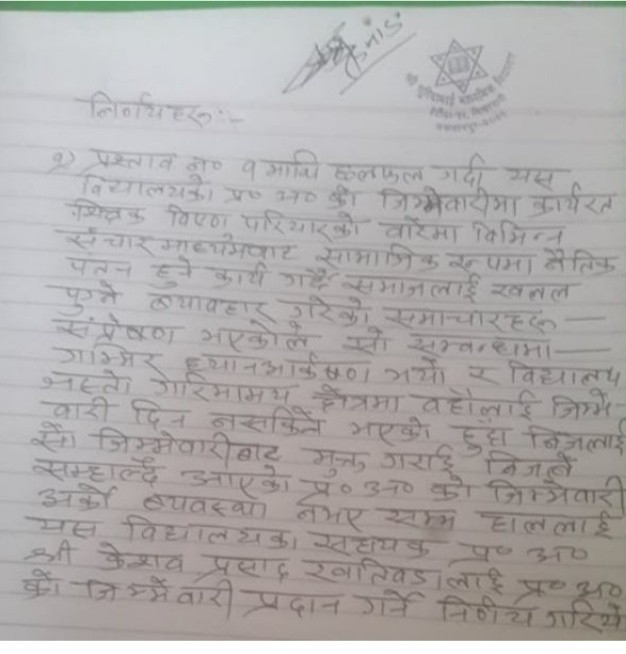 निर्णयहरू :-
१) प्रस्ताव न० १ माथि छलफल गर्दा यस
विद्यालयको प्र० अ० को जिम्मेवारीमा कार्यरत
शिक्षक विष्णु परियारको बारेमा विभिन्न
संचार माध्यमबाट सामाजिक रूपमा नैतिक
पतन हुने कार्य गर्दै समाजलाई खलल
पुग्ने ब्यावहार गरेको समाचारहरू —
संप्रेषण भएकोले सो सम्बन्धमा —
गम्भिर ध्यानआर्कषण भयो र विद्यालय
जस्तो गारिमामय क्षेत्रमा वहाँलाई जिम्मे-
वारी दिन नसकिने भएको हुदा निजलाई
सो जिम्मेवारीबाट मुक्त गराई निजले
सम्हाल्दै आएको प्र० अ० को जिम्मेवारी
अर्को ब्यवस्था नभए सम्म हाललाई
यस विद्यालयका सहायक प्र० अ०
श्री केशव प्रसाद खतिवडालाई प्र० अ०
को जिम्मेवारी प्रदान गर्ने निर्णय गरियो